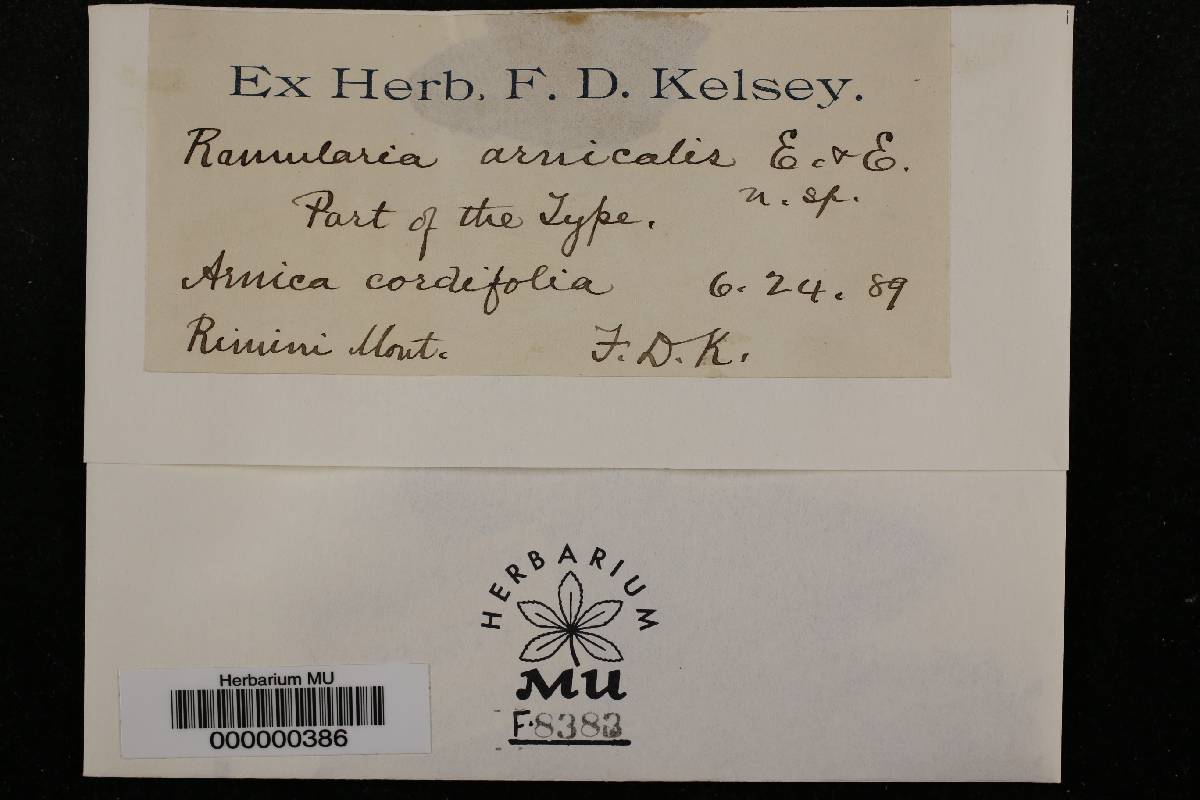 Ex Herb. F. D. Kelsey.
Ramularia arnicalis E. & E.
n. sp.
Part of the Type.
Arnica cordifolia 6. 24. 89
Rimini Mont. F. D. K.
HERBARIUM
MU
F-8383
Herbarium MU
000000386